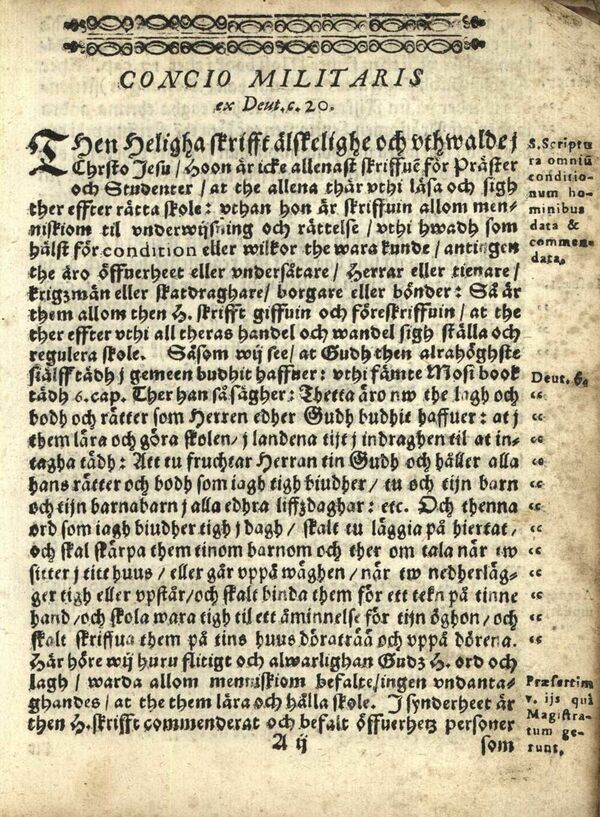 CONCIO MILITARIS
ex Deut. c. 20.
THen Heligha skrifft älskelighe och vthwalde j
Chrsto Jesu / Hoon är icke allenast skriffuē för Präster
och Studenter / at the allena thär vthi läsa och sigh
ther effter rätta skole: vthan hon är skriffuin allom men-
niskiom til vnderwijsning och rättelse / vthi hwadh som
hälst för condition eller wilkor the wara kunde / antingen
the äro öffuerheet eller vndersåtare / Herrar eller tienare /
krigzmän eller skatdraghare / borgare eller bönder: Så är
them allom then H. skrifft giffuin och föreskriffuin / at the
ther effter vthi all theras handel och wandel sigh ställa och
regulera skole. Såsom wij see / at Gudh then alrahöghste
siälff tädh j gemeen budhit haffuer: vthi fämte Mosi book
tädh 6. cap. Ther han så sägher: Thetta äro nw the lagh och
bodh och rätter som Herren edher Gudh budhit haffuer: at j
them lära och göra skolen / j landena tijt j indraghen til at in-
tagha tädh: Att tu fruchtar Herran tin Gudh och håller alla
hans rätter och bodh som iagh tigh biudher / tu och tijn barn
och tijn barnabarn j alla edhra liffzdaghar: etc. Och thenna
ord som iagh biudher tigh j dagh / skalt tu läggia på hiertat /
och skal skärpa them tinom barnom och ther om tala när tw
sitter j titt huus / eller går vppå wäghen / när tw nedherläg-
ger tigh eller vpstår / och skalt binda them för ett tekn på tinne
hand / och skola wara tigh til ett åminnelse för tijn öghon / och
skalt skriffua them på tins huus döraträä och vppå dörena.
Här höre wij huru flitigt och alwarlighan Gudz H. ord och
lagh / warda allom menniskiom befalte / ingen vndanta-
ghandes / at the them lära och hålla skole. J synderheet är
then H. skrifft commenderat och befalt öffuerhetz personer
A ij
som
S. Scriptu
ra omniū
conditio-
num ho-
minibus
data &
commen-
data.
Deut. 6.
“
“
“
“
“
“
“
“
“
“
“
“
“
Præsertim
v. ijs qui
Magistra-
tum ge-
runt.